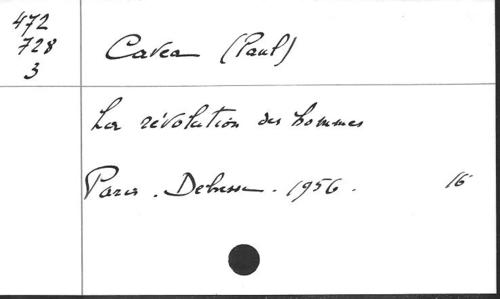 472
728
3
Cavea (Paul)
La révolution des hommes
Paris. Debresse. 1956. 16